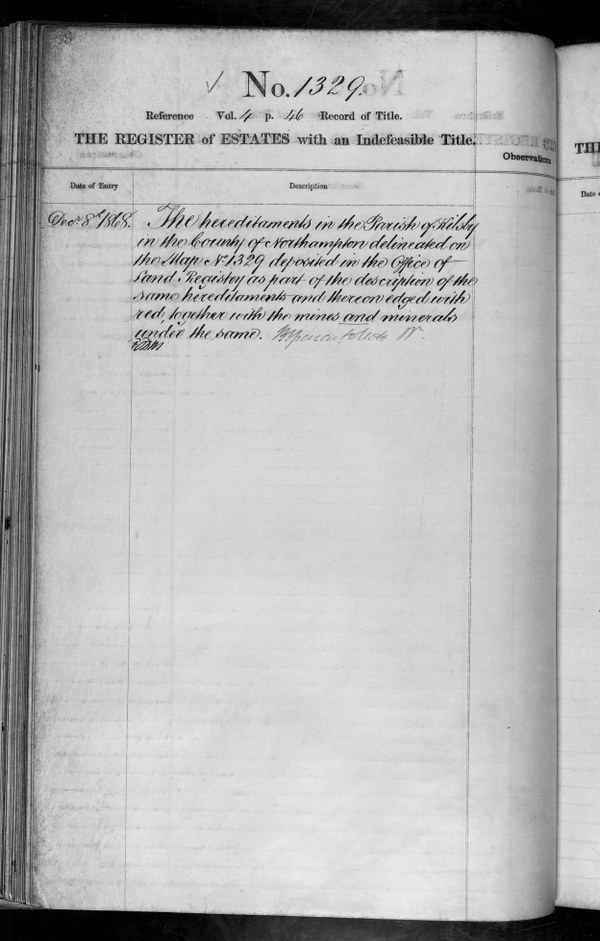 No. 1329.
Reference Vol. 4 p. 46 Record of Title.
THE REGISTER of ESTATES with an Indefeasible Title.
Observations
Date of Entry
Description
Decr 8th 1868.
The hereditaments in the Parish of Kilsby
in the County of Northampton delineated on
the Map No 1329 deposited in the Office of
Land Registry as part of the description of the
same hereditaments and thereon edged with
red, together with the mines and minerals
under the same.
TH
Date